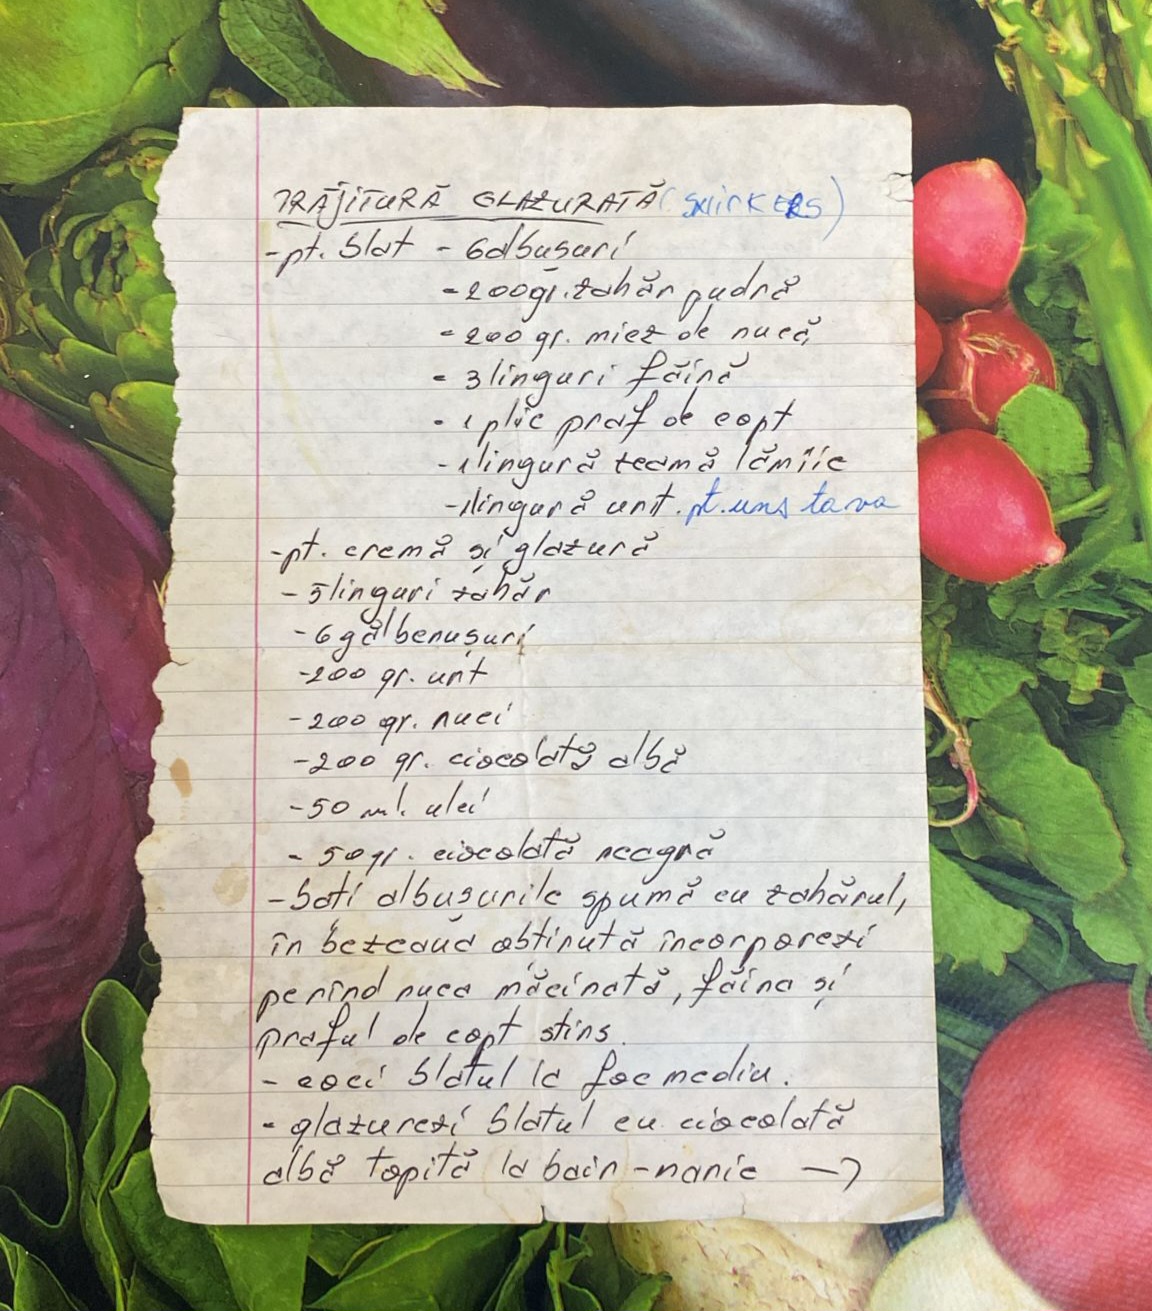 PRĂJITURĂ GLAZURATĂ (SNICKERS)
-pt. blat - 6 albușuri
- 200 gr. zahăr pudră
- 200 gr. miez de nucă
- 3 linguri făină
- 1 plic praf de copt
- 1 lingură zeamă lămîie
- 1 lingură unt. pt. uns tava
-pt. cremă și glazură
- 5 linguri zahăr
- 6 gălbenușuri
- 200 gr. unt
- 200 gr. nuci
- 200 gr. ciocolată albă
- 50 ml. ulei
- 50 gr. ciocolată neagră
- bati albușurile spumă cu zahărul,
în bezeaua obtinută încorporezi
perînd nuca măcinată, făina și
praful de copt stins.
- coci blatul la foc mediu.
- glazurezi blatul cu ciocolată
albă topită la bain-marie →